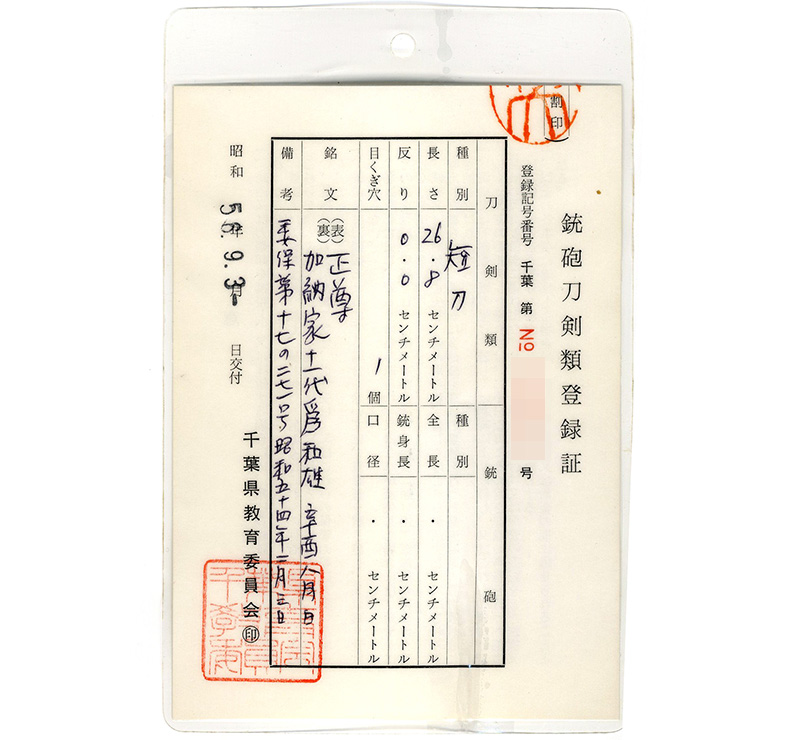 割印
銃砲刀剣類登録証
登録記号番号 千葉 第 No 号
刀剣類 銃砲
種別 短刀 種別
長さ 26.8 センチメートル 全長 ・ センチメートル
反り 0.0 センチメートル 銃身長 ・ センチメートル
目くぎ穴 1 個 口径 ・ センチメートル
銘文 (表) 正尊
(裏) 加納家十一代為和雄 辛酉八月日
備考 委保第十七の二七一号 昭和五十四年二月三日
昭和 56年 9.3 月 日交付
千葉県教育委員会 印